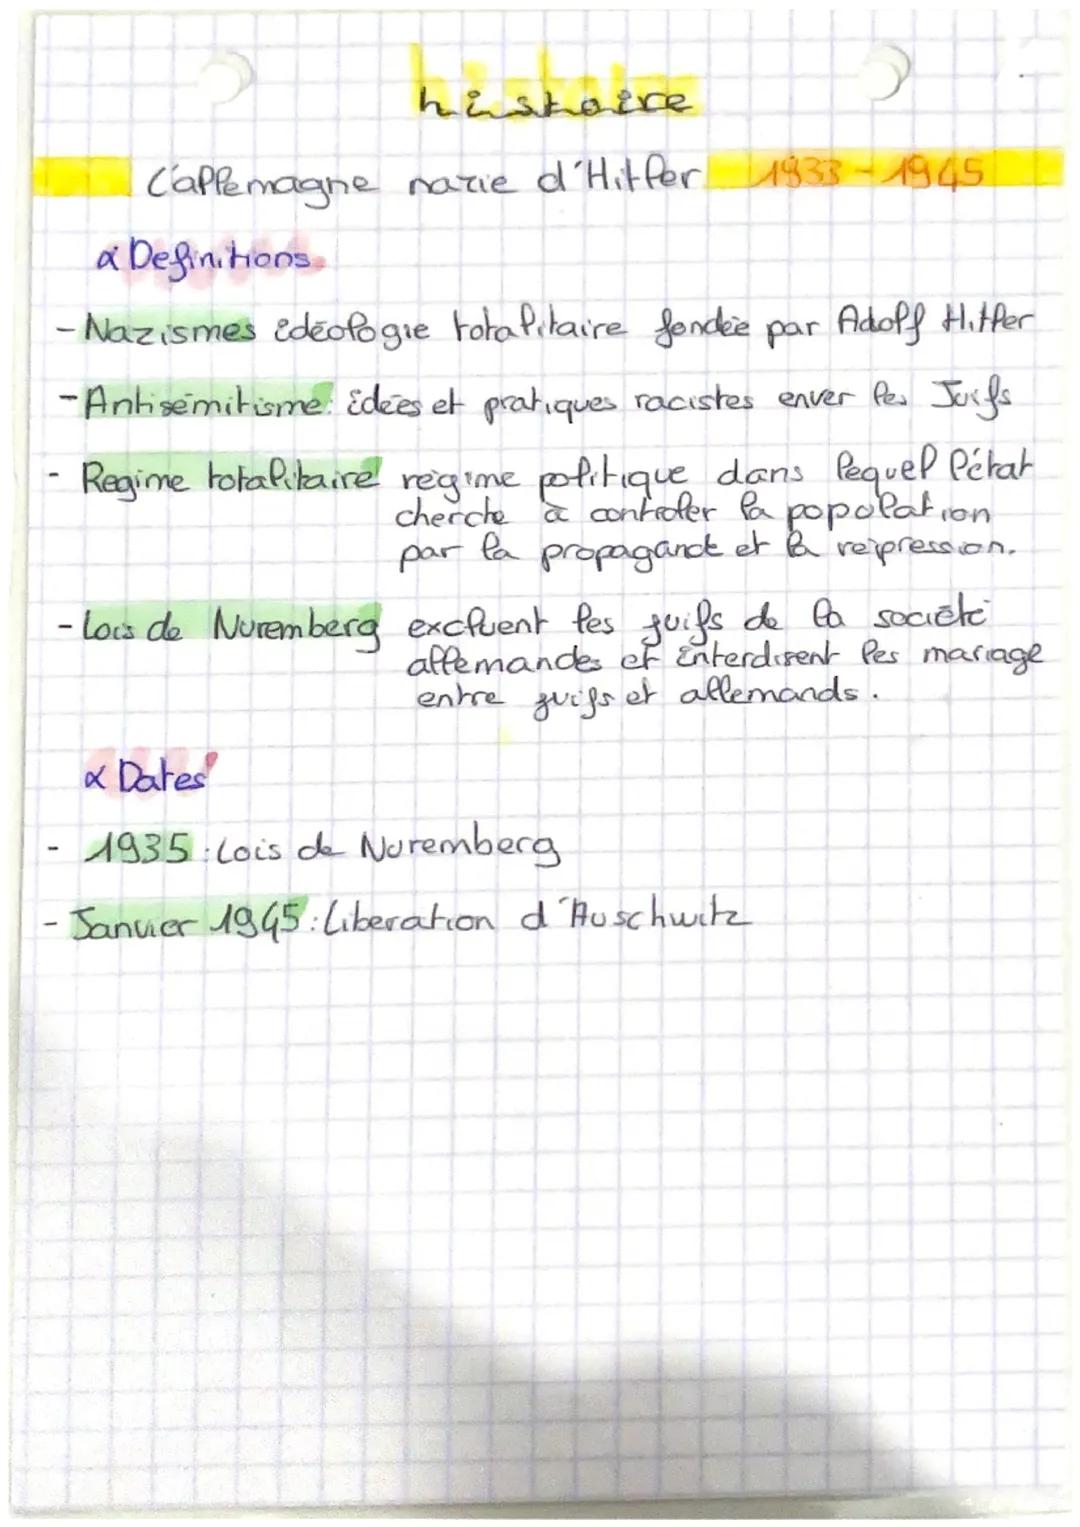 histoire
L'allemagne nazie d'Hitler 1933-1945
∝ Definitions
- Nazismes idéologie totalitaire fondée par Adolf Hitler
- Antisémitisme: idées et pratiques racistes enver les Juifs
- Regime totalitaire régime politique dans lequel l'état
cherche à controler la population
par la propagande et la répression.
- Lois de Nuremberg excluent les juifs de la société
allemandes et interdisent les mariage
entre juifs et allemands.
∝ Dates
- 1935: Lois de Nuremberg
- Janvier 1945: Liberation d'Auschwitz